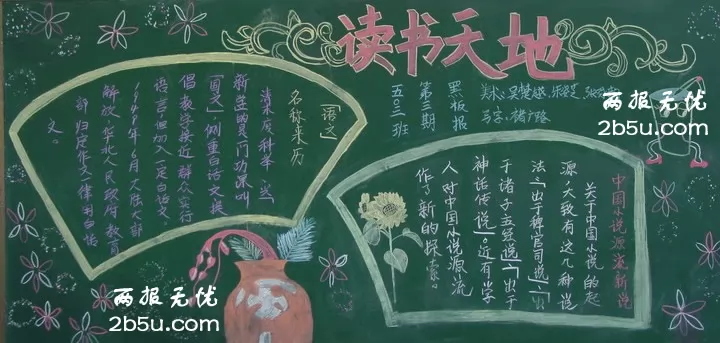 读书天地
「语文」
名称来历
清末废科举、兴
新学的 功课叫
「国文」，侧重白话文
倡教学接近群众实行
语言，但加入一定白话文。
年6月大陆大部
解放，华北人民政府教育
部归定作文一律书白话
文。
黑板报
第三期
五〇三班
美术:吴慧
中国小说源流新说
关于中国小说的起
源，大致有这几种说
法:「出于稗官司说」「出
于诸子立经说」「出于
神话传说」。近有学
人对中国小说源流
作了新的探索。
两报无忧
2b5u.com
两报无忧
2b5u.com